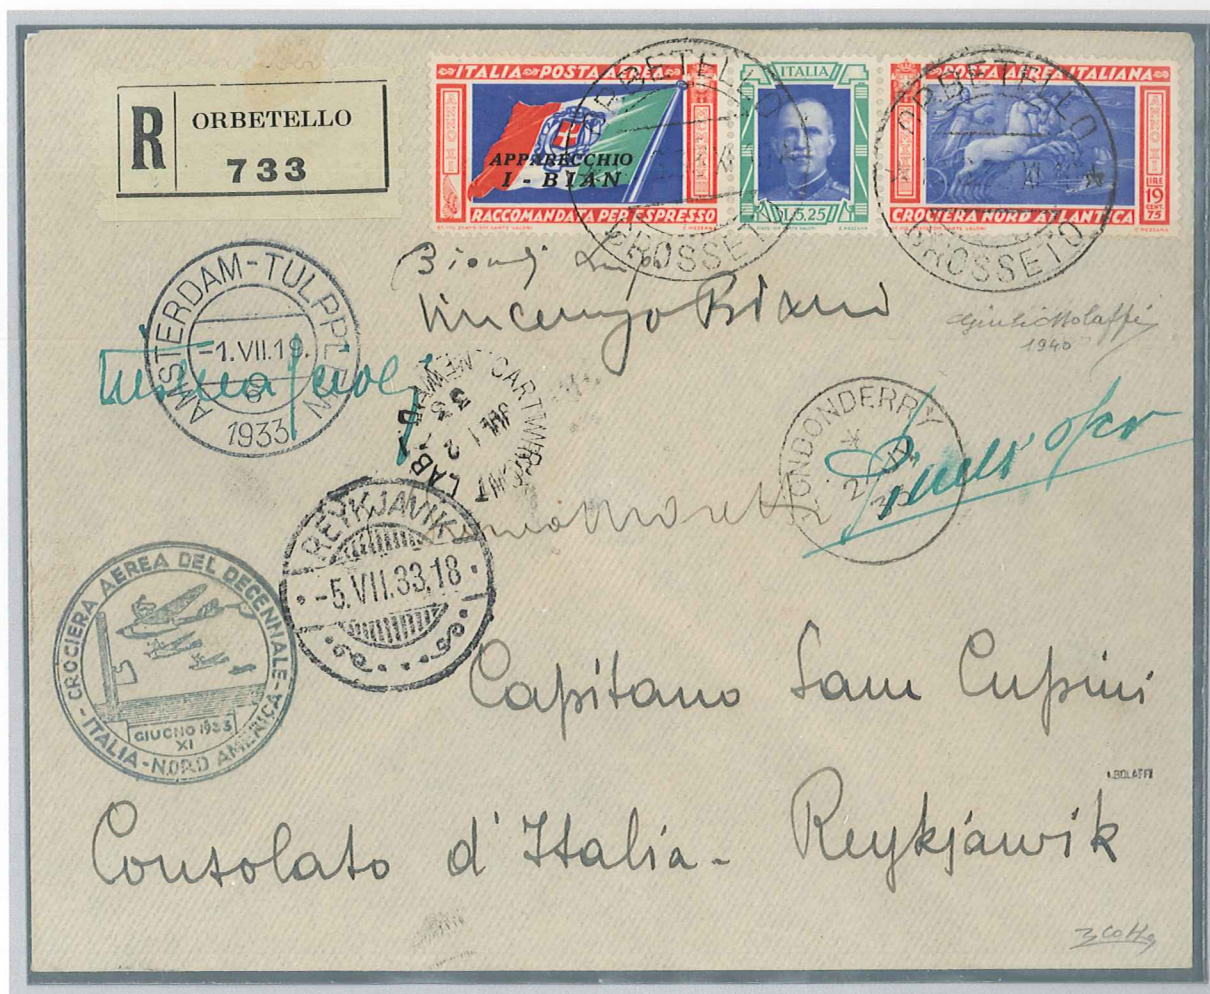 R
ORBETELLO
733
ITALIA POSTA AEREA
APPARECCHIO
I - BIAN
RACCOMANDATA PER ESPRESSO
ITALIA
DI L. 5.25
POSTA AEREA ITALIANA
LIRE
19
CENT.
75
CROCIERA NORD ATLANTICA
ORBETELLO
GROSSETO
ORBETELLO
GROSSETO
AMSTERDAM-TULPPLEIN
-1.VII.19.
8
1933
Vincenzo Biani
Giulio Bolaffi
1940
CARTWRIGHT LABR
JUL 12
33
LONDONDERRY
2 JY
33
REYKJAVIK
-5.VII.33.18
CROCIERA AEREA DEL DECENNALE
GIUGNO 1933
XI
ITALIA-NORD AMERICA
Capitano Sam Cupini
A.BOLAFFI
Consolato d'Italia - Reykjawik